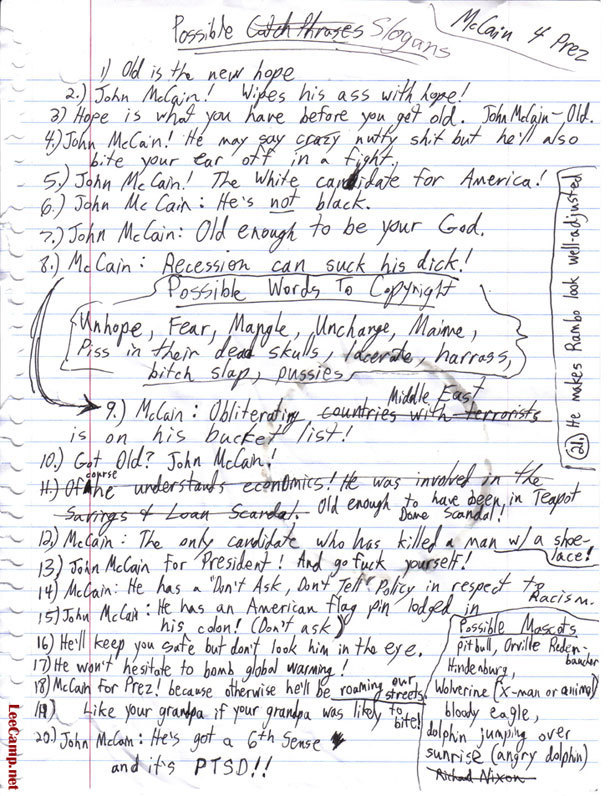 Possible Catch Phrases Slogans
McCain 4
Prez
1) Old is the new hope
2.) John McCain! Wipes his ass with hope!
3) Hope is what you have before you get old. John McCain - Old.
4.) John McCain! He may say crazy nutty shit but he'll also
bite your ear off in a fight.
5.) John McCain! The White candidate for America!
6.) John McCain: He's not black.
7.) John McCain: Old enough to be your God.
8.) McCain: Recession can suck his dick!
Possible Words To Copyright
Unhope, Fear, Mangle, Unchange, Maime,
Piss in their dead skulls, lacerate, harrass,
bitch slap, pussies
Middle East
9.) McCain: Obliterating countries with terrorists
is on his bucket list!
10.) Got Old? John McCain!
11.) Of course he understands economics! He was involved in the
Savings & Loan Scandal. Old enough to have been in Teapot
Dome Scandal!
12.) McCain: The only candidate who has killed a man w/ a shoe-
lace!
13) John McCain for President! And go fuck yourself!
14) McCain: He has a "Don't Ask, Don't Tell" Policy in respect to
Racism.
15) John McCain: He has an American flag pin lodged in
his colon! (Don't ask)
16) He'll keep you safe but don't look him in the eye.
17) He won't hesitate to bomb global warming!
18) McCain for Prez! because otherwise he'll be roaming our
streets!
19) Like your grandpa if your grandpa was likely to
bite!
20.) John McCain: He's got a 6th Sense
and it's PTSD!!
21.) He makes Rambo look well-adjusted
Possible Mascots
pitbull, Orville Reden-
bancher
Hindenburg,
Wolverine (X-man or animal)
bloody eagle,
dolphin jumping over
sunrise (angry dolphin)
Richard Nixon
LeeCamp.net